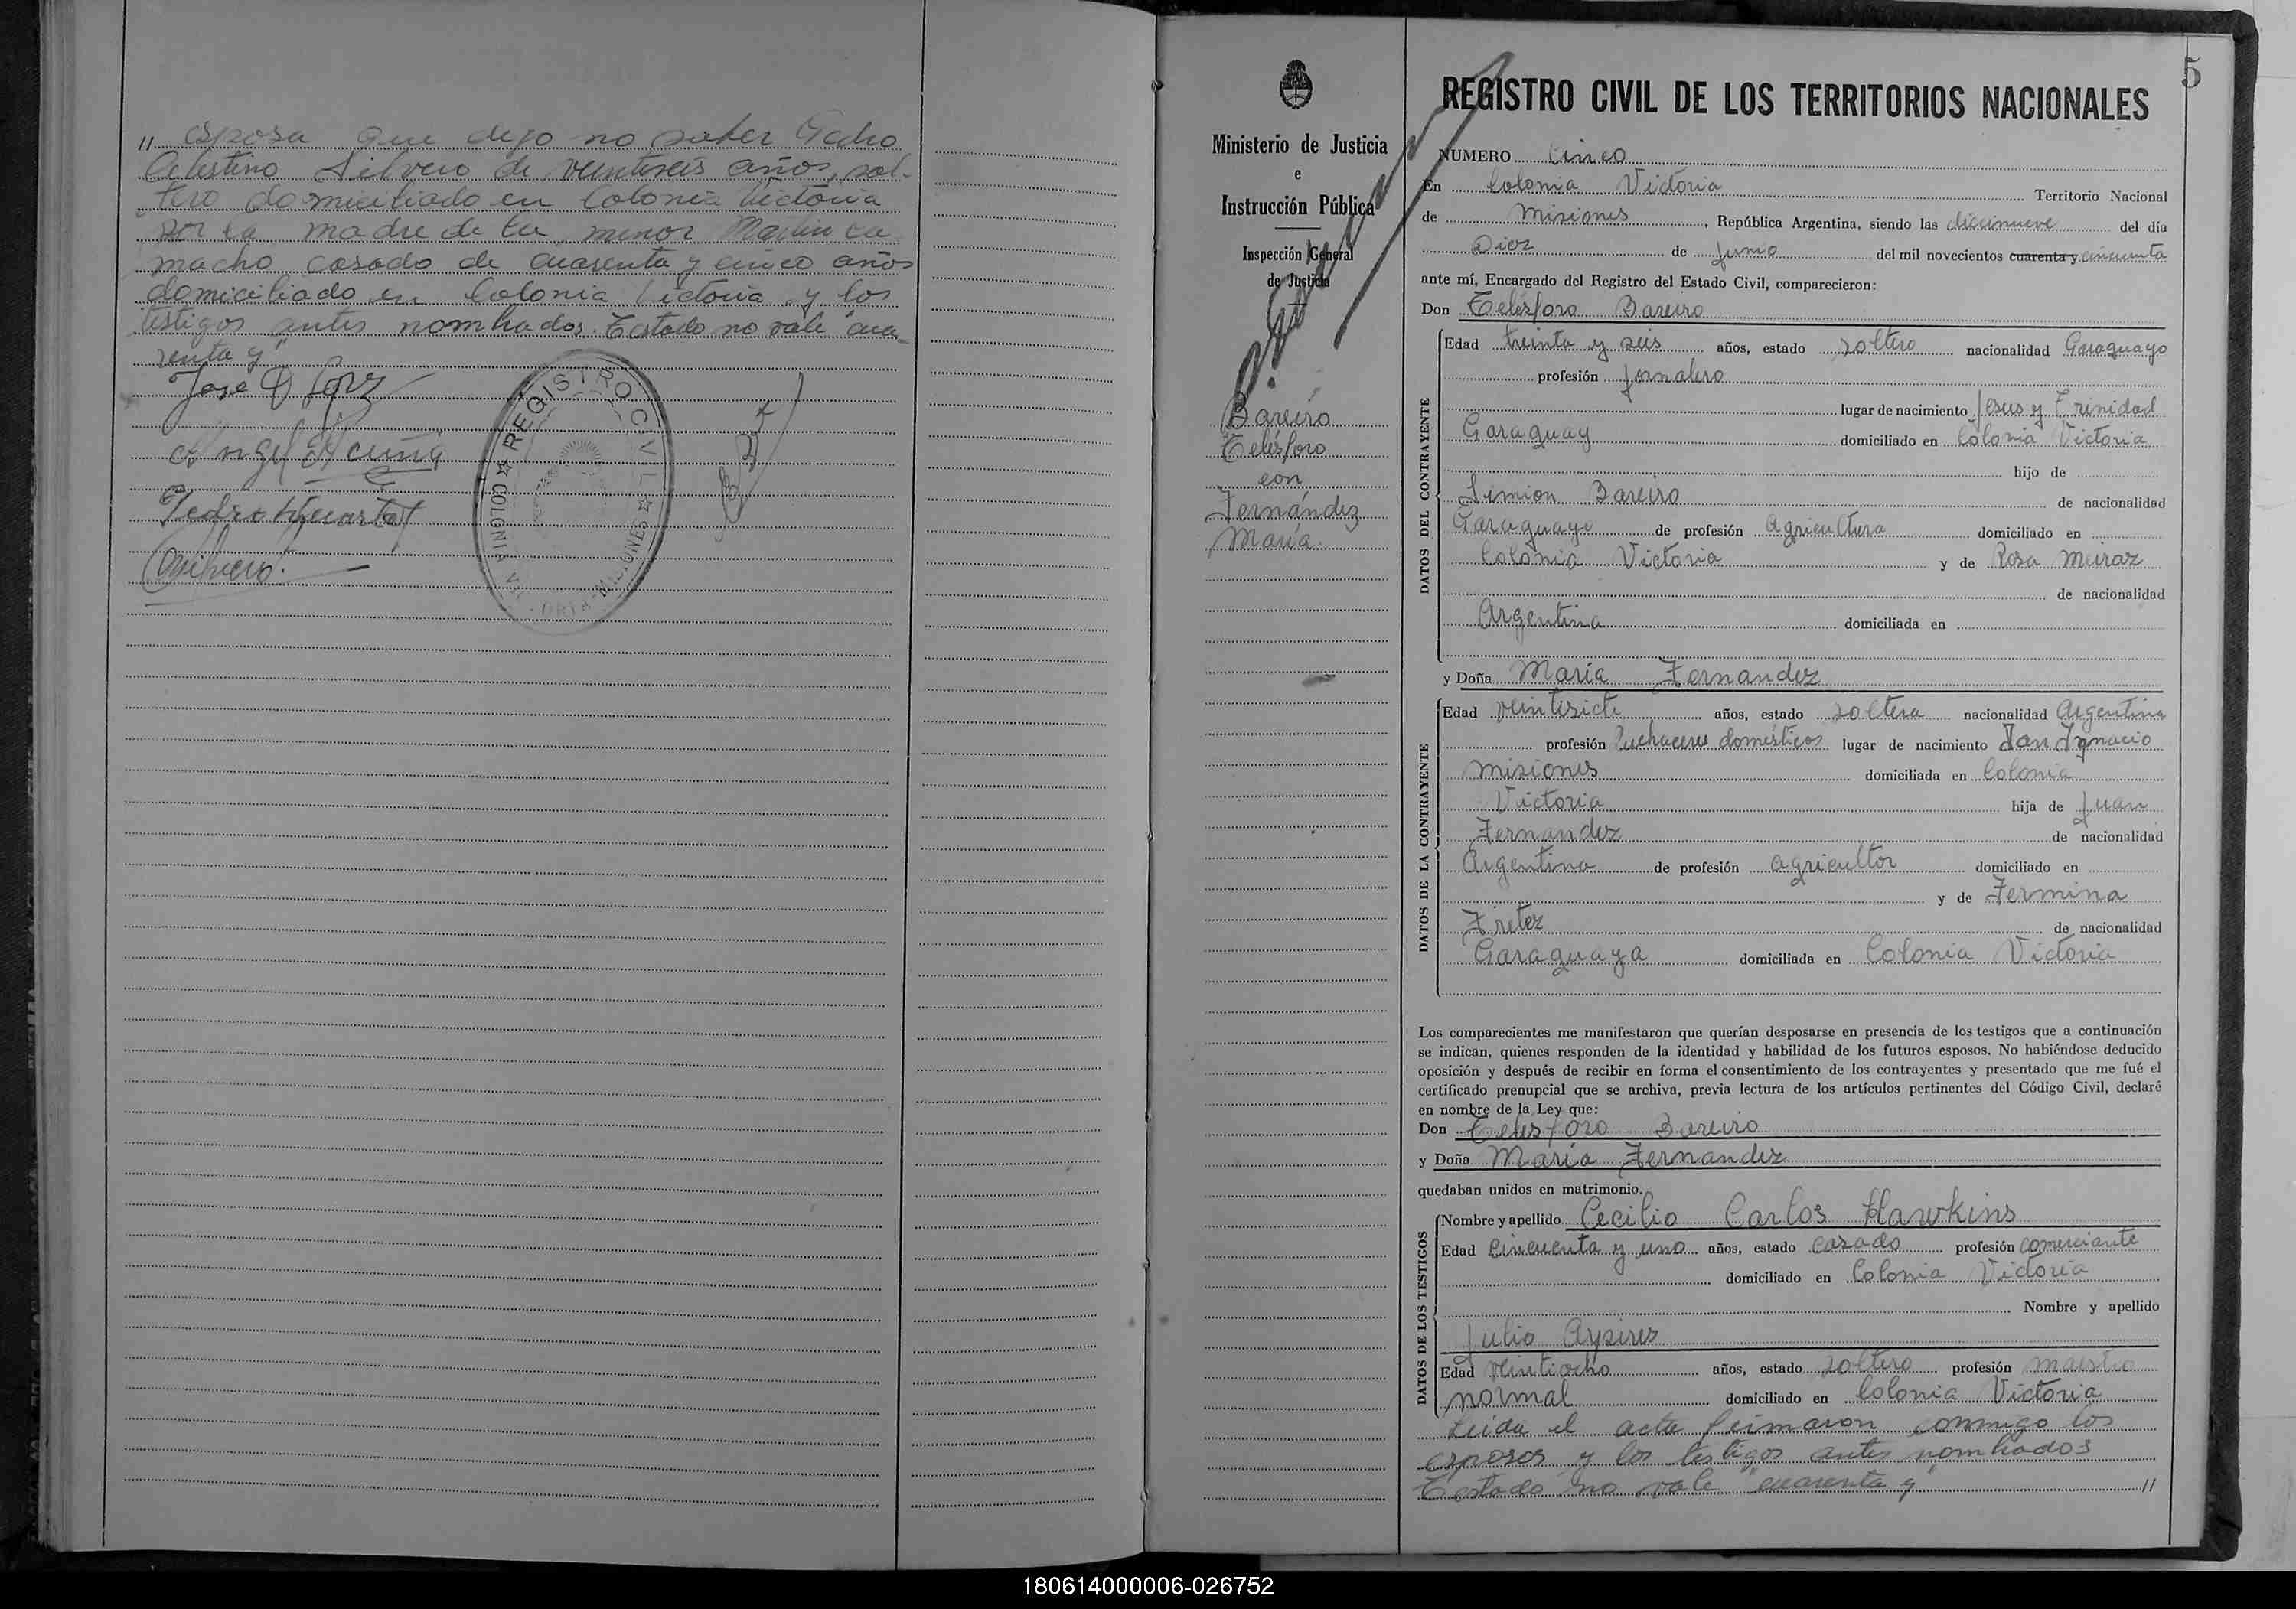 " esposa que dejo no saber Pedro
Celestino Silvero de veintiseis años, sol-
tero domiciliado en Colonia Victoria
por la madre de la menor Martin Ca
macho casado de cuarenta y cinco años
domiciliado en Colonia Victoria y los
testigos antes nombrados. Testado no vale "cua-
renta y"
Angel Acuña
REGISTRO CIVIL
COLONIA VICTORIA - MISIONES
5
Ministerio de Justicia
e
Instrucción Pública
Inspección General
de Justicia
Bareiro
Telésforo
con
Fernández
María
REGISTRO CIVIL DE LOS TERRITORIOS NACIONALES
NUMERO Cinco
En Colonia Victoria Territorio Nacional
de Misiones, República Argentina, siendo las diecinueve del día
Diez de Junio del mil novecientos cuarenta y cincuenta
ante mí, Encargado del Registro del Estado Civil, comparecieron:
Don Telésforo Bareiro
DATOS DEL CONTRAYENTE
Edad treinta y seis años, estado soltero nacionalidad Paraguayo
profesión Jornalero
lugar de nacimiento Jesus y Trinidad
Paraguay domiciliado en Colonia Victoria
hijo de
Simion Bareiro de nacionalidad
Paraguayo de profesión Agricultura domiciliado en
Colonia Victoria y de Rosa Meiraz
de nacionalidad
Argentina domiciliada en
y Doña María Fernandez
DATOS DE LA CONTRAYENTE
Edad veintisiete años, estado soltera nacionalidad Argentina
profesión Quehaceres domésticos lugar de nacimiento San Ignacio
Misiones domiciliada en Colonia
Victoria hija de Juan
Fernandez de nacionalidad
Argentino de profesión agricultor domiciliado en
y de Fermina
Fretez de nacionalidad
Paraguaya domiciliada en Colonia Victoria
Los comparecientes me manifestaron que querían desposarse en presencia de los testigos que a continuación
se indican, quienes responden de la identidad y habilidad de los futuros esposos. No habiéndose deducido
oposición y después de recibir en forma el consentimiento de los contrayentes y presentado que me fué el
certificado prenupcial que se archiva, previa lectura de los artículos pertinentes del Código Civil, declaré
en nombre de la Ley que:
Don Telesforo Bareiro
y Doña María Fernandez
quedaban unidos en matrimonio.
DATOS DE LOS TESTIGOS
Nombre y apellido Cecilio Carlos Hawkins
Edad Cincuenta y uno años, estado casado profesión comerciante
domiciliado en Colonia Victoria
Nombre y apellido
Julio
Edad veintiocho años, estado soltero profesión maestro
normal domiciliado en Colonia Victoria
Leida el acta firmaron conmigo los
esposos y los testigos antes nombrados
Testado no vale "cuarenta y" "
180614000006-026752